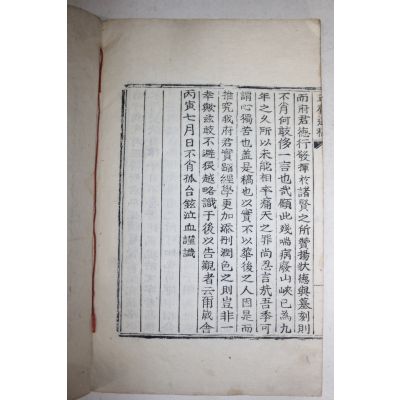 而府君德行發揮於諸賢之所贊揚狀德與墓刻則
不肖何敢侈一言也哉顧此殘喘病廢山峽已為九
年之久所以未能相率痛天之罪尚忍言哉吾季可
謂心獨苦也盖是稿也以實不以華後之人因是而
推究我府君實踐經學更加添刪潤色之則豈非一
幸歟玆敢不避猥越略識于後以告觀者云爾歲舍
丙寅七月日不肖孤台鉉泣血謹識